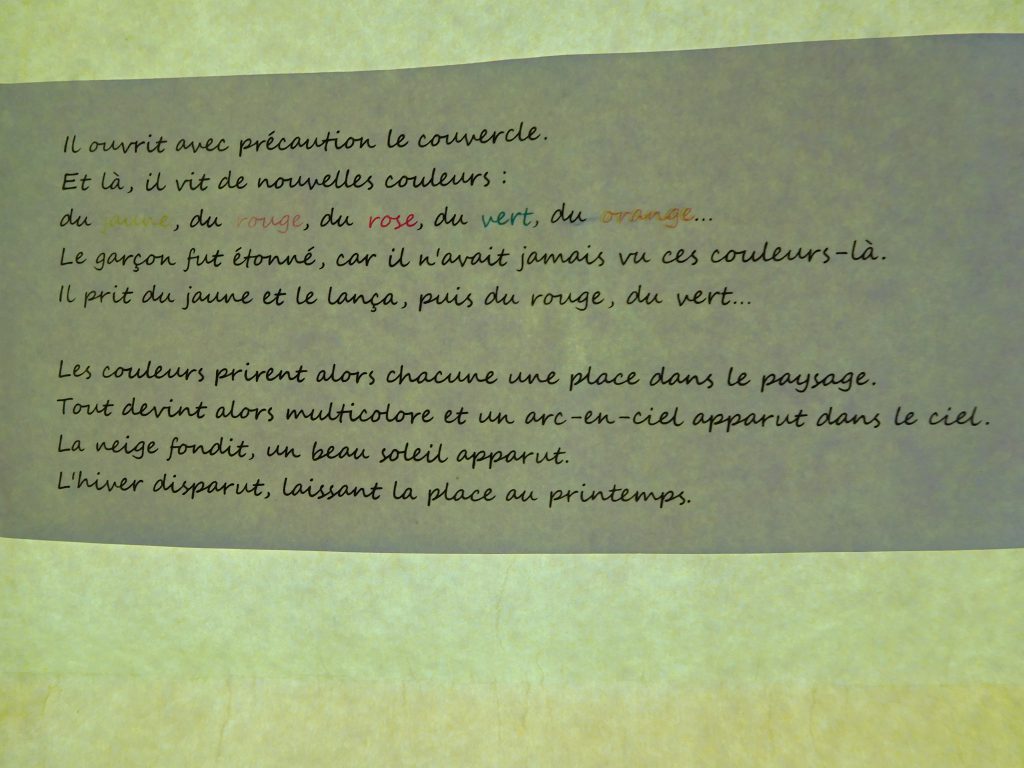 Il ouvrit avec précaution le couvercle.
Et là, il vit de nouvelles couleurs :
du jaune, du rouge, du rose, du vert, du orange...
Le garçon fut étonné, car il n'avait jamais vu ces couleurs-là.
Il prit du jaune et le lança, puis du rouge, du vert...
Les couleurs prirent alors chacune une place dans le paysage.
Tout devint alors multicolore et un arc-en-ciel apparut dans le ciel.
La neige fondit, un beau soleil apparut.
L'hiver disparut, laissant la place au printemps.